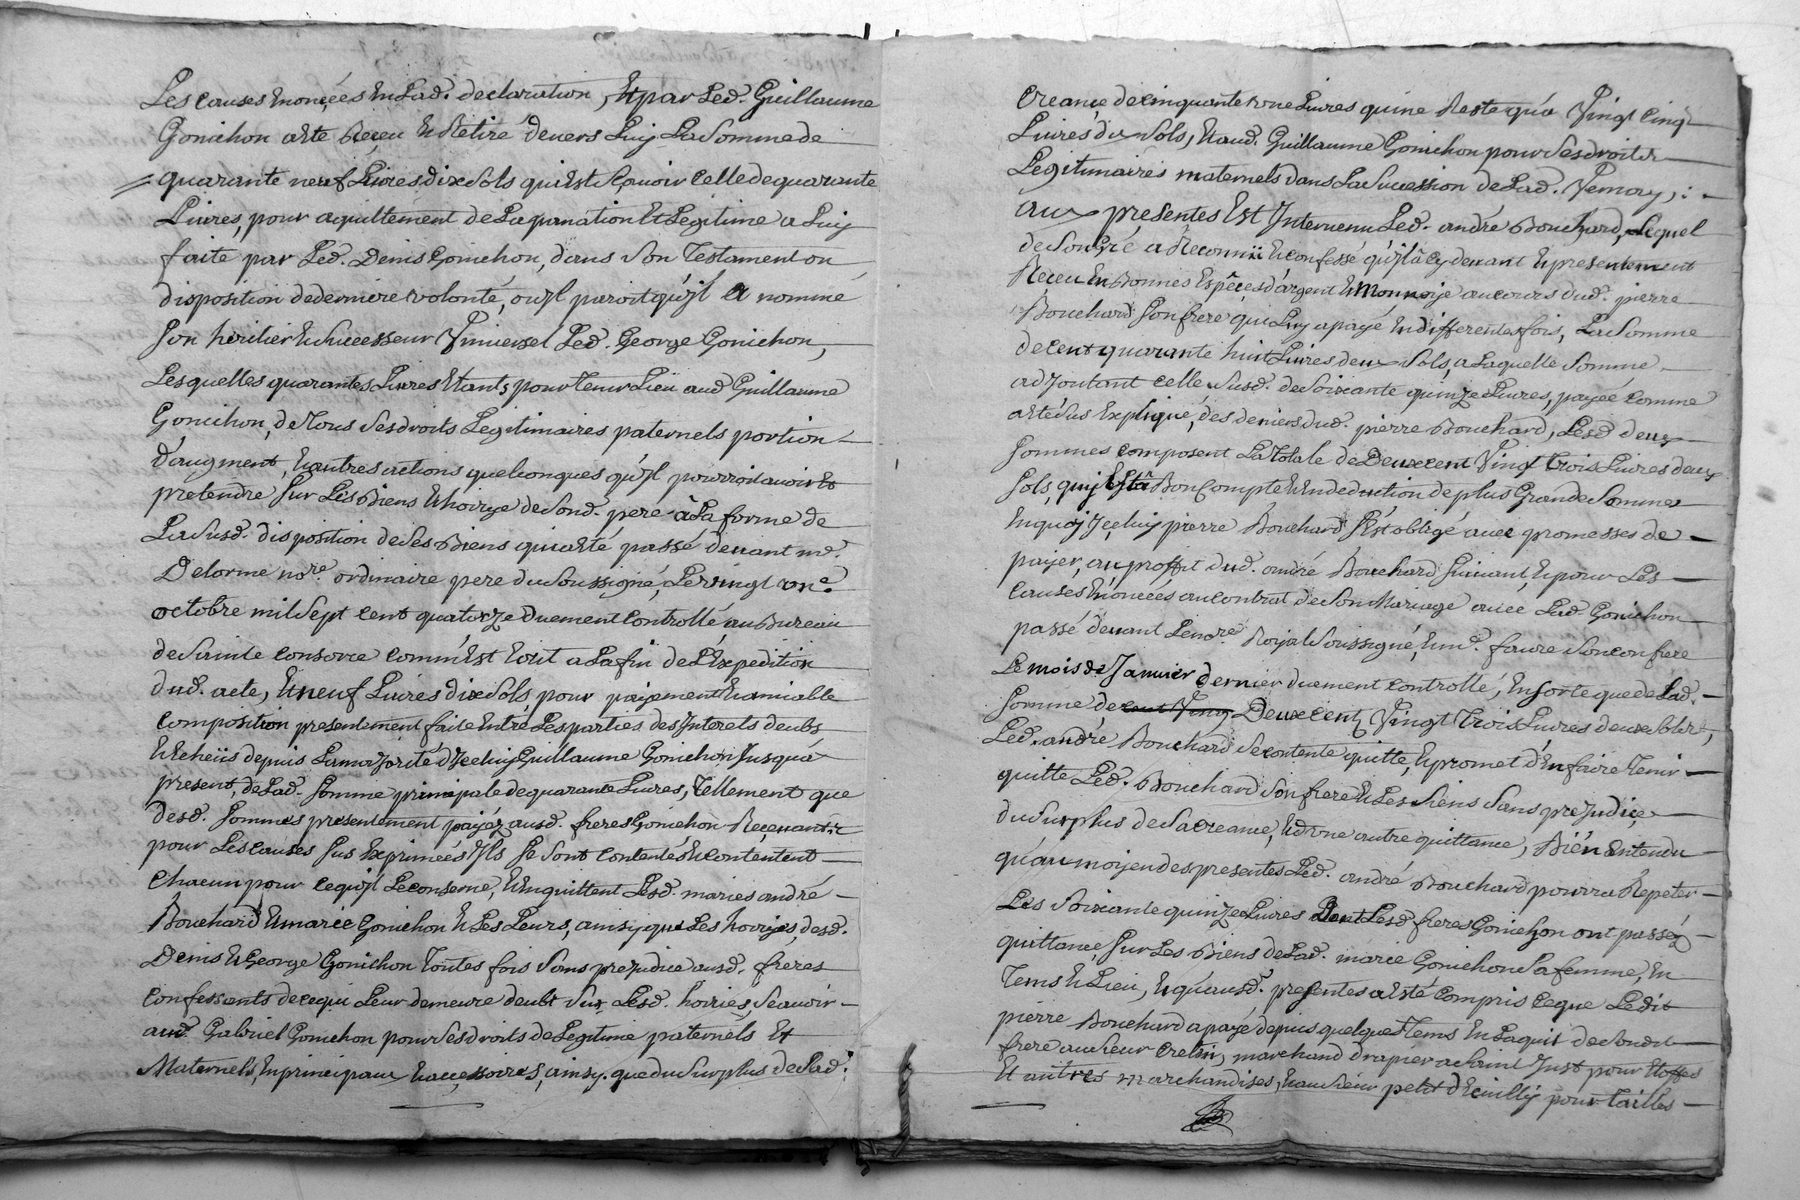 Les causes Enoncées En Lad. declaration, Et par Led. Guillaume
Gonichon a eté Reçeu et Retiré devers Luy La Somme de
quarante neuf Livres dix Sols qui Est Sçavoir Celle de quarante
Livres, pour aquittement de La donation et Legitime a Luy
faite par Led. Denis Gonichon, dans Son Testament ou
disposition de derniere volonté, ou jl paroit qu'jl a nommé
Son heritier et Successeur Vniversel Led. George Gonichon,
Lesquelles quarantes Livres Etants pour tenir Lieü aud. Guillaume
Gonichon, de Tous Ses droits Legitimaires paternels portion
d'augment, et autres actions quelconques qu'jl pourroit avoir Et
pretendre Sur Les Biens et hoirye de Sond. pere à La forme de
La Susd. disposition de Ses Biens qui a eté passé devant me.
Delorme nore. ordinaire pere du Soussigné, Le vingt one.
octobre mil Sept cent quatorze Duement Controllé au Bureau
de Sainte Consorce Comm'Est Ecrit a La fin de L'Expedition
dud. acte, Et neuf Livres dix Sols pour paiement et amiable
composition presentement faite Entre Les parties des Interets deubs
et Echeüs depuis La majorité d'Jceluy Guillaume Gonichon Jusqu'a
present, de Lad. Somme principale de quarante Livres, Tellement que
desd. Sommes presentement païéz ausd. freres Gonichon Reçevants
pour Les causes Sus Exprimées Jls Se Sont Contentés et contentent
Chacun pour ce qu'jl Le conserne, et En quittent Lesd. mariés andré
Bouchard et marie Gonichon et Les Leurs, ainsy que Les hoiryes desd.
Denis et George Gonichon toutes fois Sans prejudice ausd. freres
Confessants de ce qui Leur demeure deubt Sur Lesd. hoiries, Scavoir
aud. Gabriel Gonichon pour Ses droits de Legitime paternels et
Maternels, En principaux et accessoires, ainsy que du Surplus de Lad.
Creance de Cinquante vne Livres qui ne Reste qu'a Vingt Cinq
Livres dix Sols, Et aud. Guillaume Gonichon pour Ses droits
Legitimaires maternels dans La Succession de Lad. Vemay;
aux presentes Est Intervenu Led. andré Bouchard, Lequel
de Son Gré a Reconnü et confessé qu'jl a Cy devant et presentement
Receu En Bonnes Espêces d'argent et Monnoye au cours dud. pierre
Bouchard Son frere qui Luy a payé En differentes fois, La Somme
de Cent quarante huit Livres deux Sols, a Laquelle Somme
adjoutant celle Susd. de Soixante quinze Livres, payée Comme
a eté Sus Expliqué, des deniers dud. pierre Bouchard, Lesd. deux
Sommes composent La totale de Deux cent Vingt trois Livres deux
Sols, qui Est à Bon Compte et En deduction de plus Grande Sommes
En quoy Jceluy pierre Bouchard S'Est obligé avec promesses de
païer, au proffit dud. andré Bouchard Suivant, et pour Les
Causes Enoncées au contrat de Son Mariage avec Lad. Gonichon
passé devant Le nore. Royal Soussigné, et me. favre Son confrere
Le mois de Janvier dernier duement Controllé, En Sorte que de Lad.
Somme de cent Ving Deux cent Vingt trois Livres deux Sols,
Led. andré Bouchard Se contente quitte, et promet d'En faire tenir
quitte Led. Bouchard Son frere et Les Siens Sans prejudice
du Surplus de Sa creance, et d'vne autre quittance, Bien Entendu
qu'au moyen des presentes Led. andré Bouchard pourra Repeter
Les Soixante quinze Livres Dont Lesd. freres Gonichon ont passéz
quittance, Sur Les Biens de Lad. marie Gonichon Sa femme, En
tems et Lieu, et qu'ausd. presentes a Eté Compris ce que Ledit
pierre Bouchard a payé depuis quelques tems En L'aquit de Sondit
frere au Sieur Crestin, marchand drapier a Saint Just pour Etoffes
Et autres marchandises, et au Sieur petit d'Ecuilly pour tailles